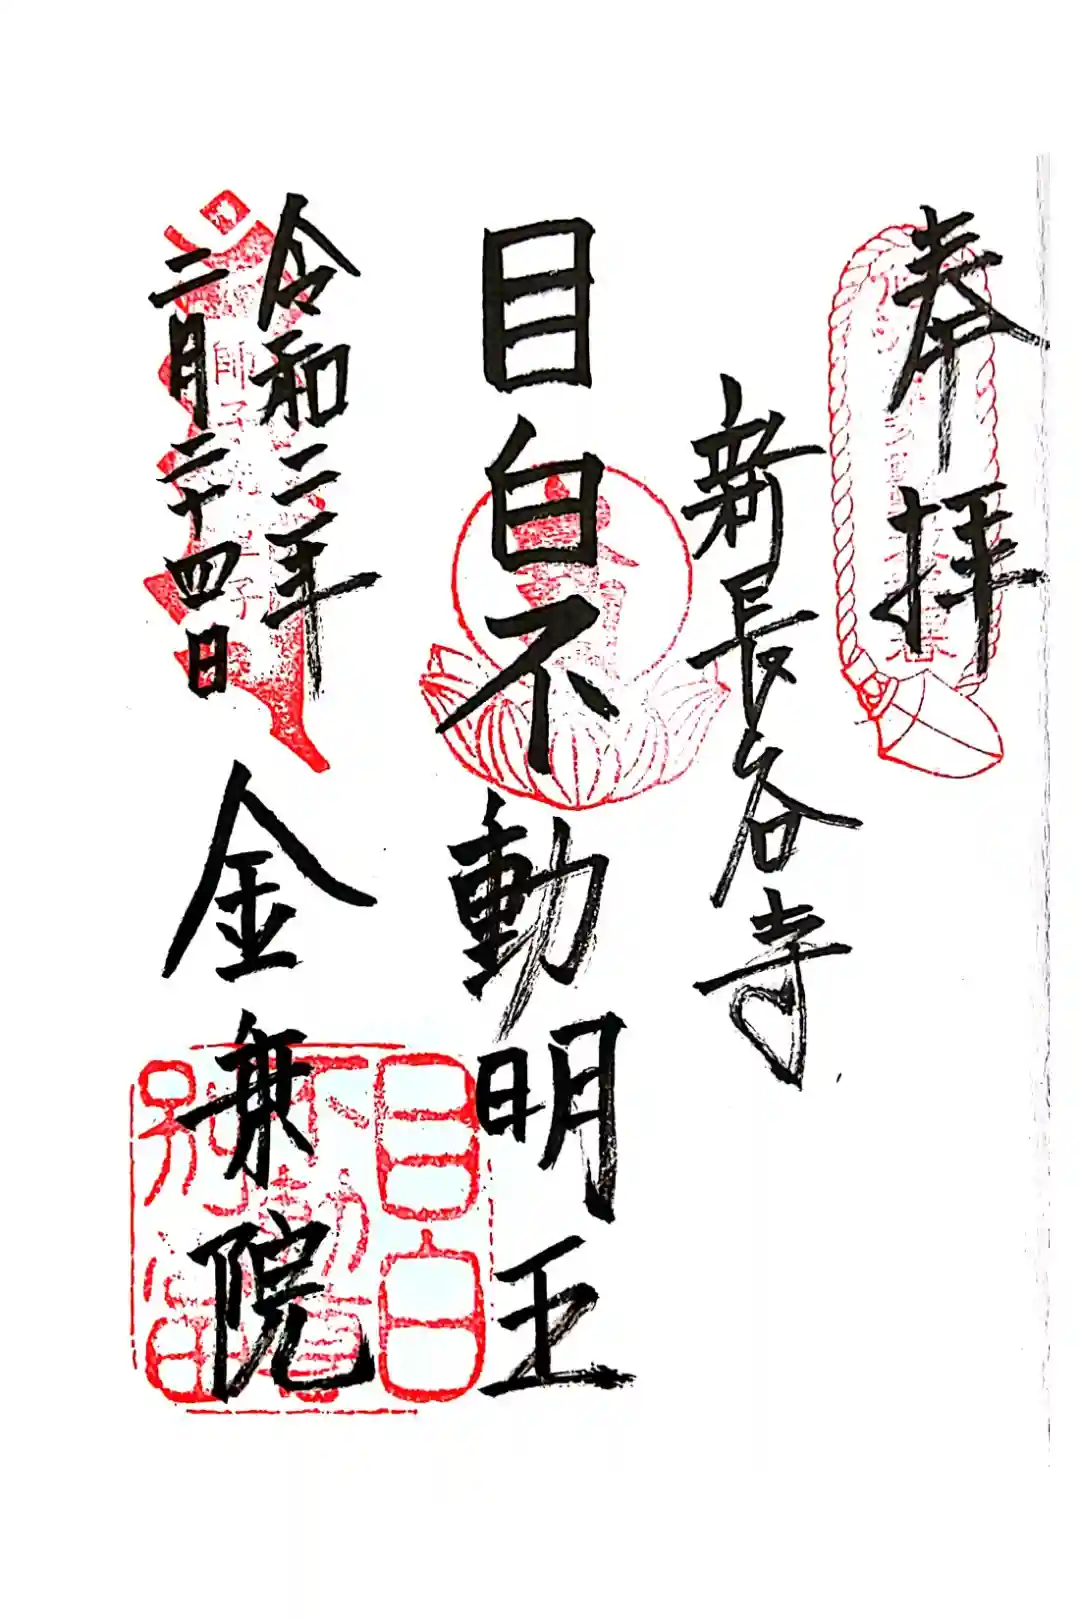 奉拝
新長谷寺
目白不動明王
令和二年
二月二十四日
金乗院
目白
不動尊
別當